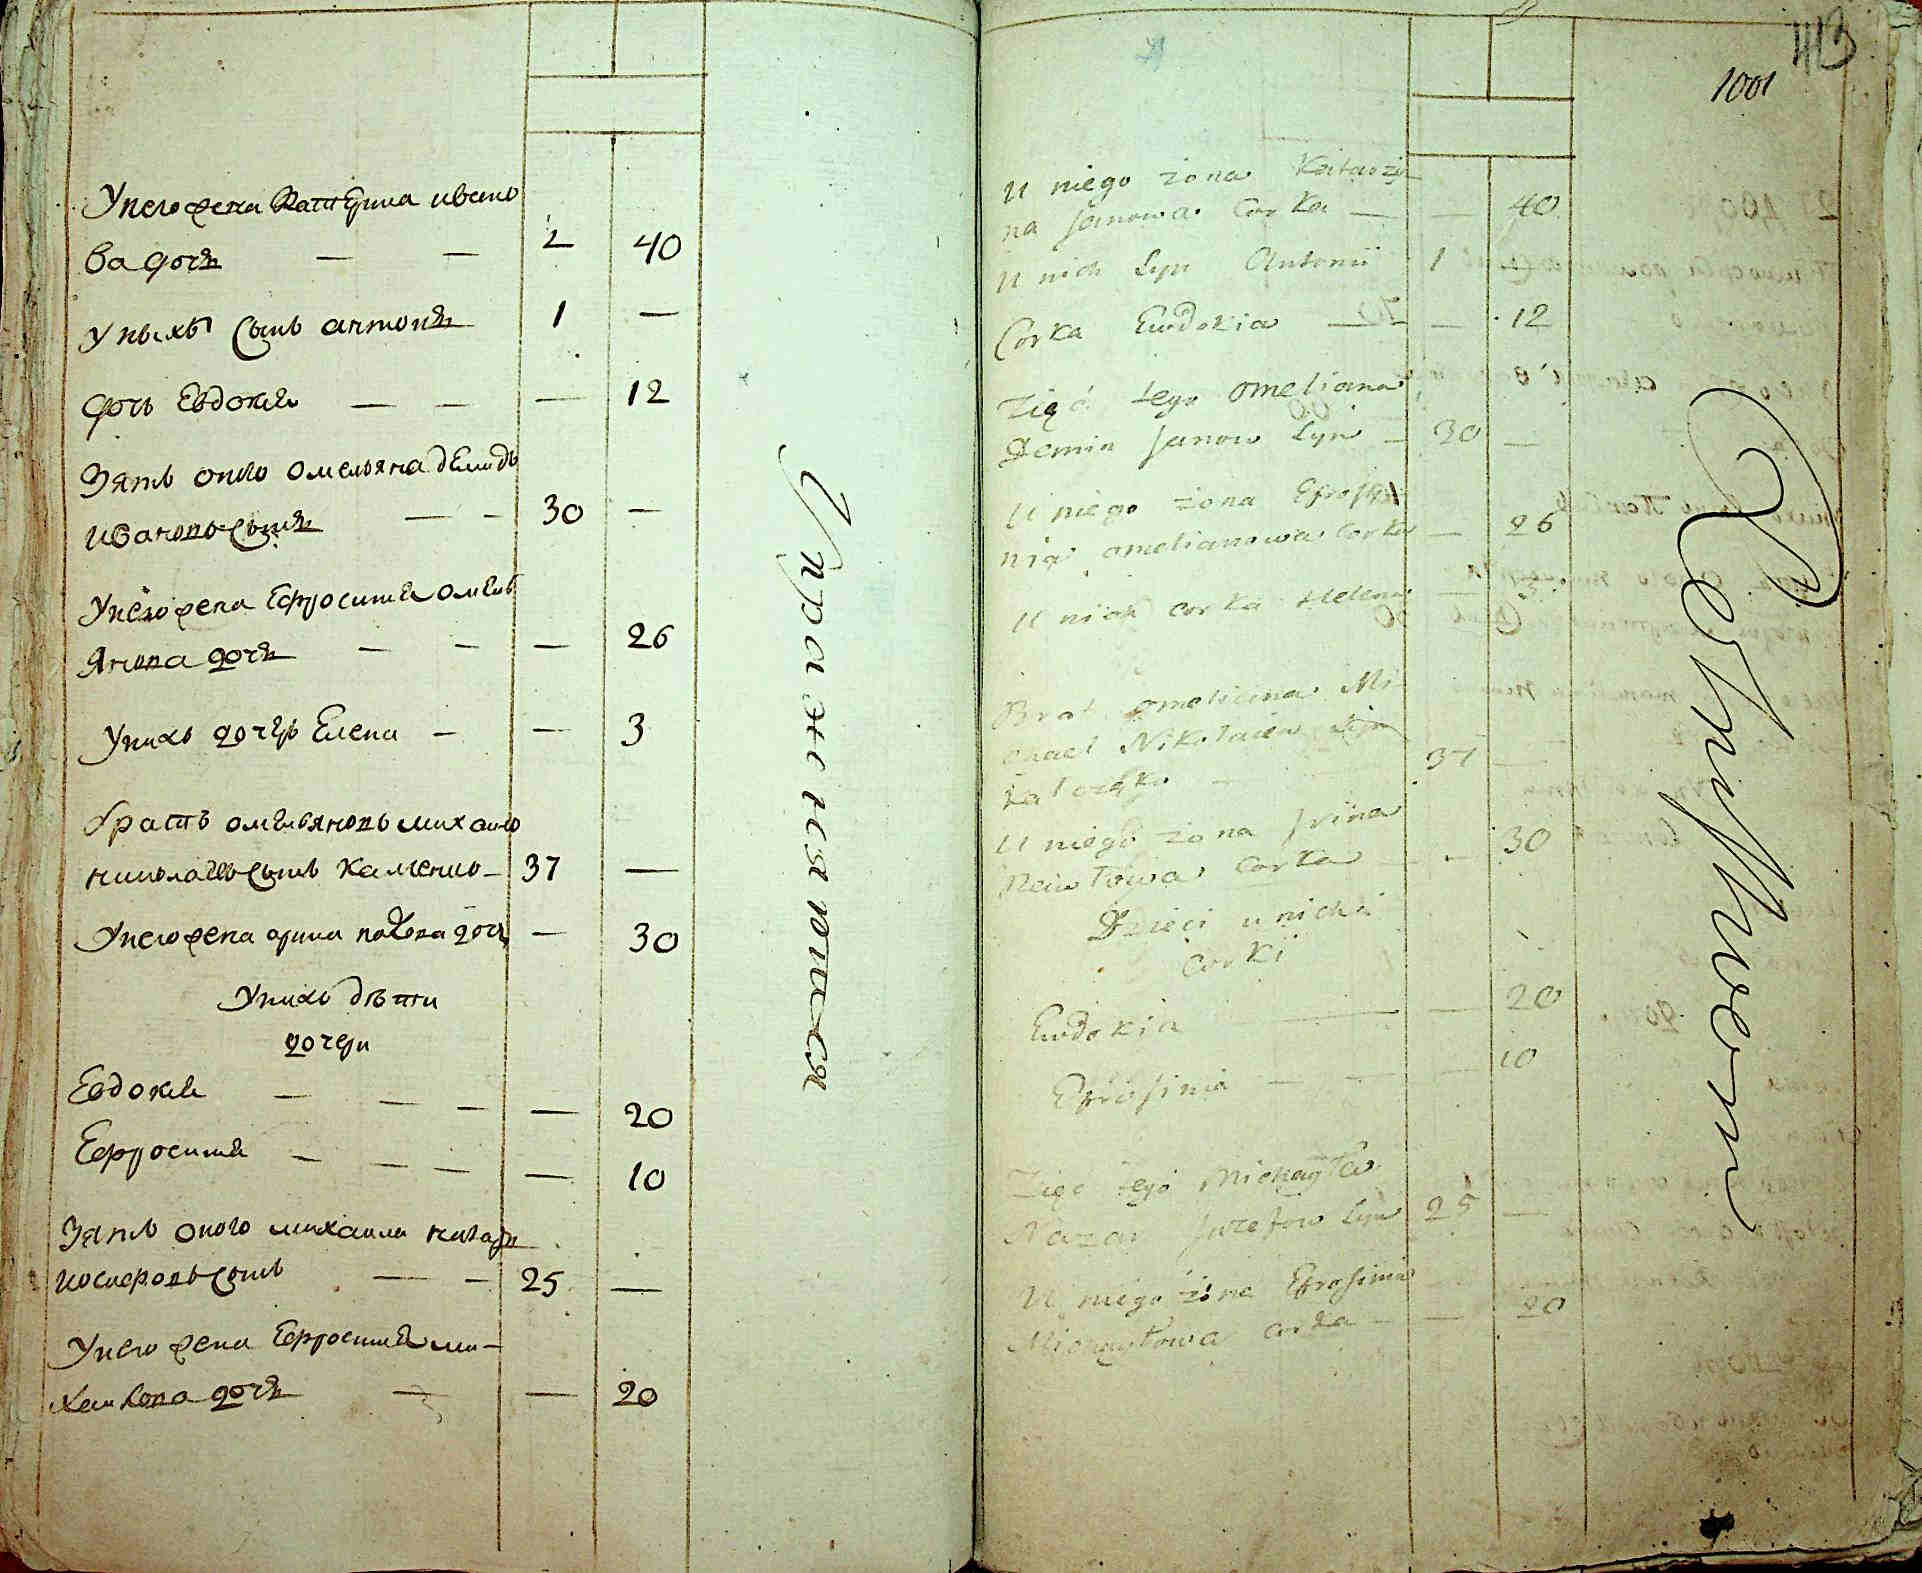 У него жена Катерина ивано
ва дочь — — 2 40
У ныхъ сынъ антоній 1 —
дочь Евдокия — — — 12
Зять оного омельяна демидъ
ивановъ сынъ — — 30 —
У него жена Ефросиния омель
янова дочь — — — 26
У нихъ дочерь Елена — — 3
братъ омельяновъ михаило
николаевъ сынъ 37 —
У него жена орина дочь — 30
У нихъ дѣти
дочери
Евдокия — — — — 20
Ефросиния — — — — 10
Зять оного михаила назаръ
иосифовъ сынъ — — 25 —
У него жена Ефросиния ми-
хайлова дочь — — 20
Упражняются
113
1001
U niego żona Katarzy
na Janowa Corka — — 40
U nich Syn Antonii 1
Corka Eudokia — — 12
Zięć tego Omeliana
Demin Janow Syn — 30 —
U niego żona Efrosi
nia Omelianowa Corka — 26
U nich corka Helena — 3
Brat Omeliana Mi
chael Nikołaiew Syn
37 —
U niego żona Irina
corka — — 30
Dzieci u nich
Corki
Eudokia — — 20
Efrosinia — — — 10
Zięć tego Michayła
Nazar Jozefow Syn 25 —
U niego żona Efrosinia
Michayłowa corka — — 20